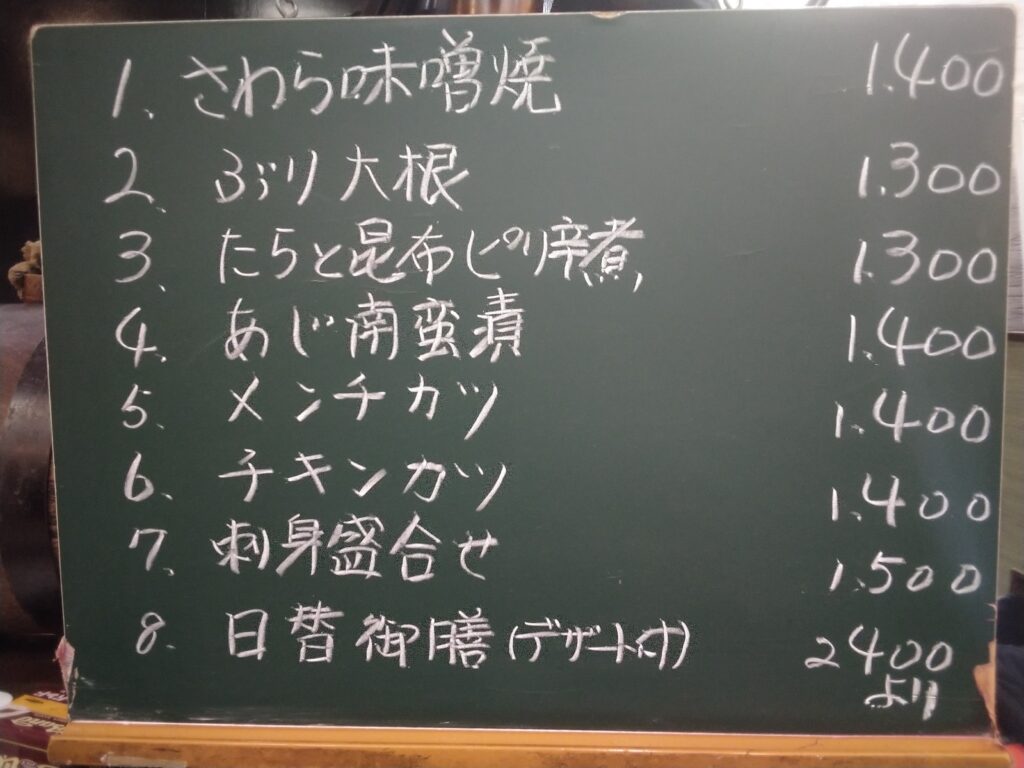 1、さわら味噌焼 1.400
2、ぶり大根 1.300
3、たらと昆布ピリ辛煮 1.300
4、あじ南蛮漬 1.400
5、メンチカツ 1.400
6、チキンカツ 1.400
7、刺身盛合せ 1.500
8、日替御膳(デザート付) 2400
より